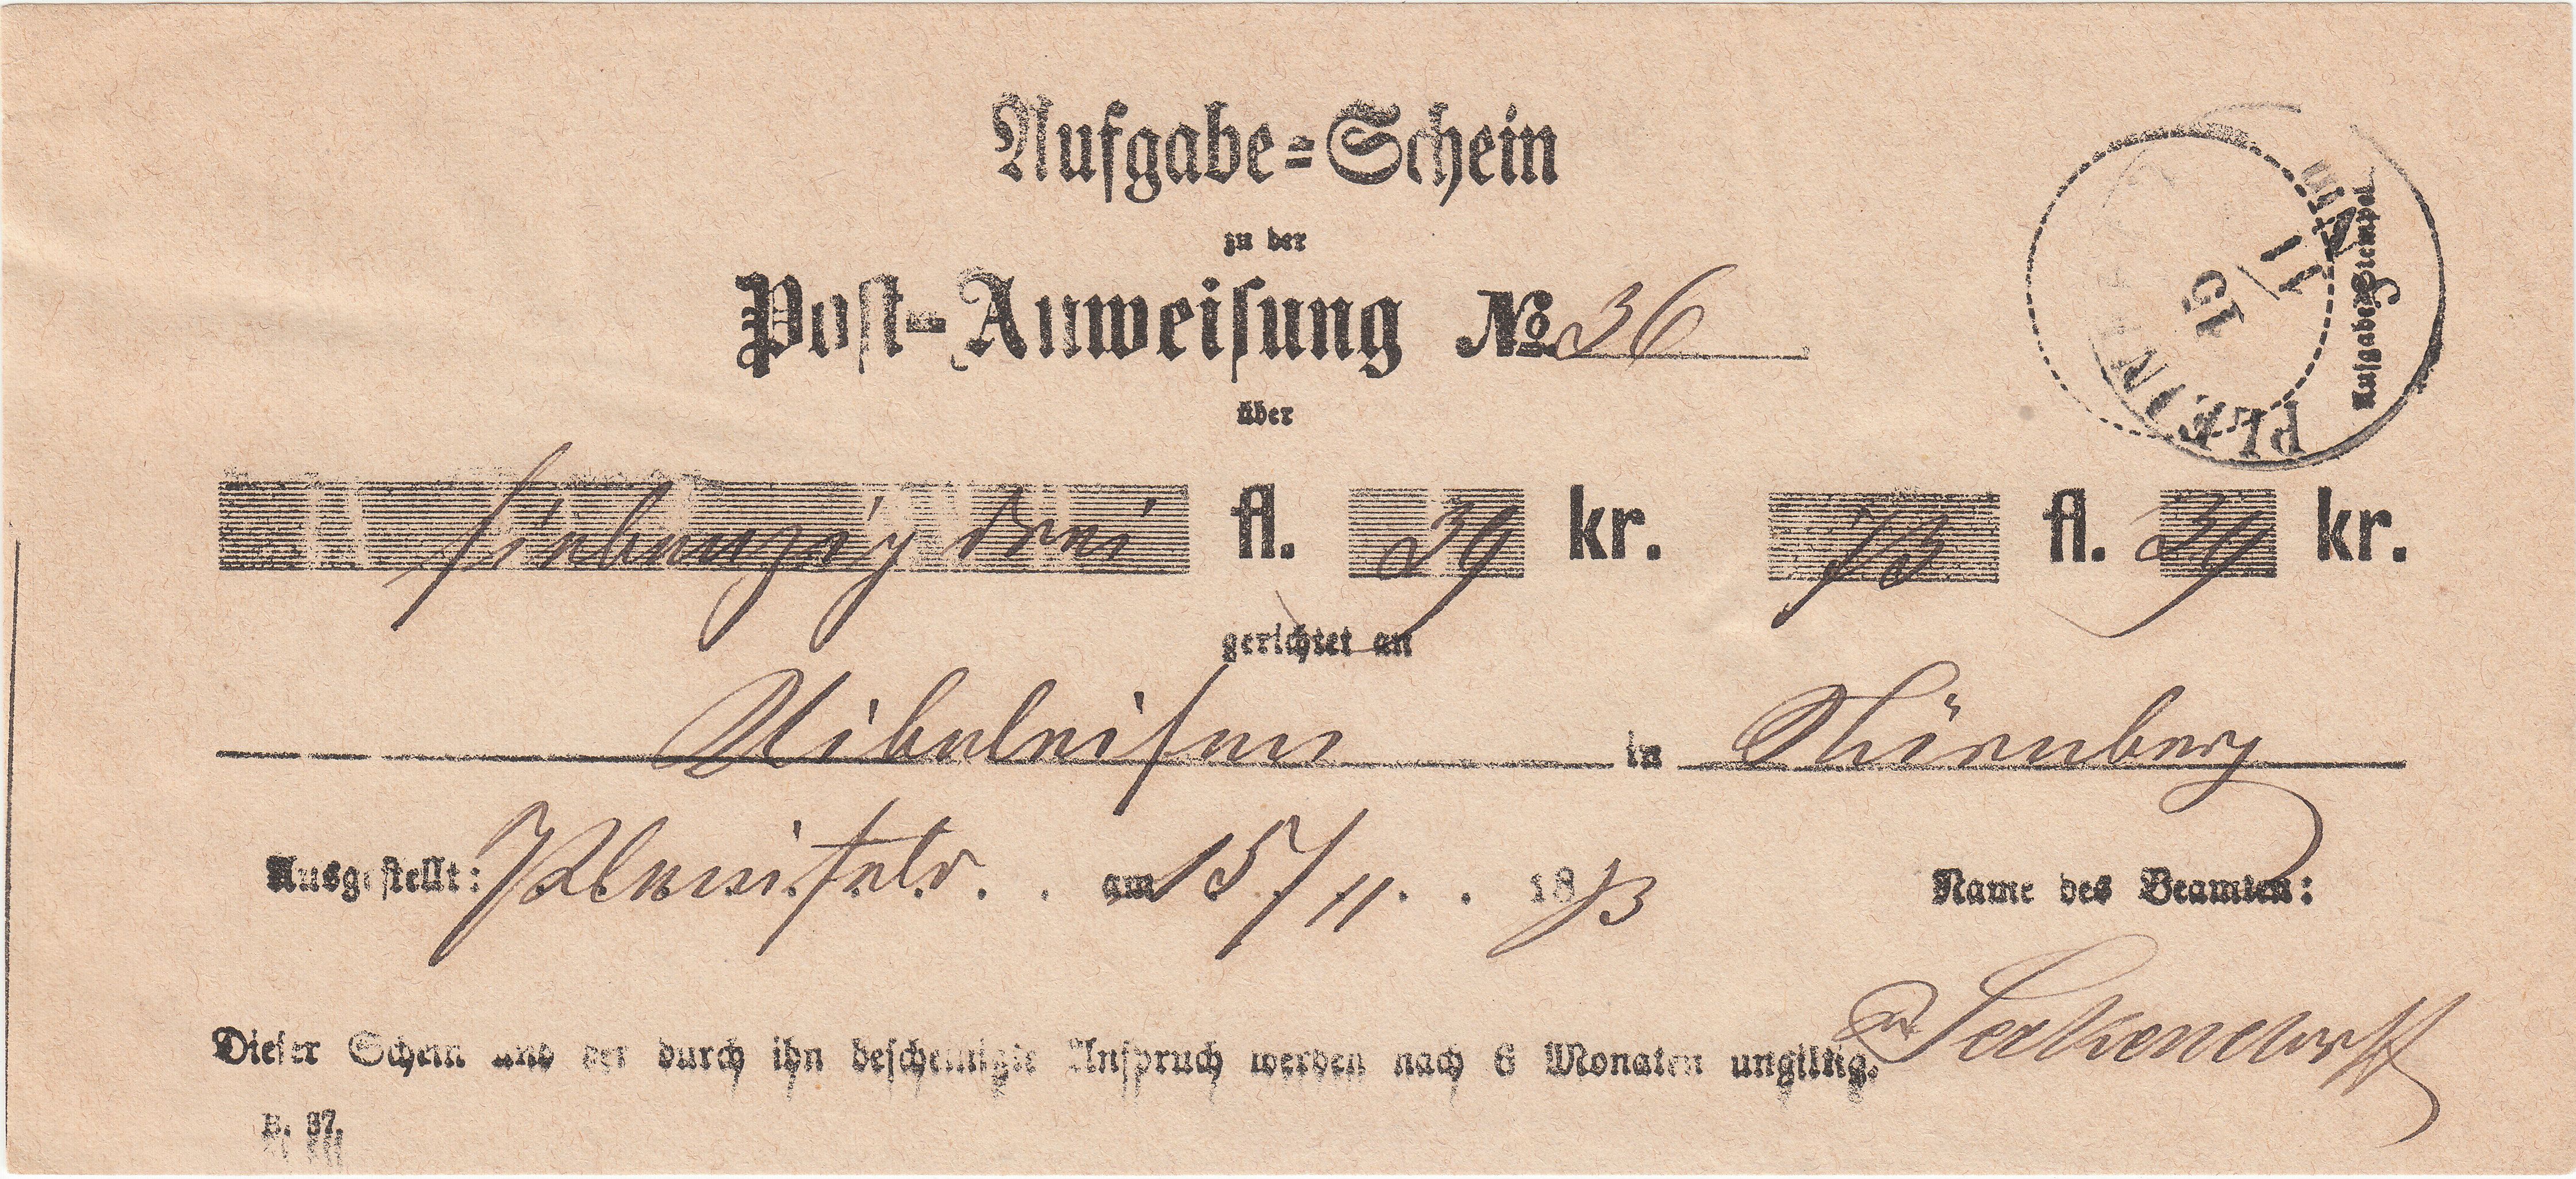 Aufgabe=Schein
zu der
Post-Anweisung No. 36
über
siebenzig drei fl. 39 kr. 73 fl. 39 kr.
gerichtet an
in Nürnberg
Ausgestellt: Pleinfeld. am 15/11. 1873 Name des Beamten:
Dieser Schein und der durch ihn bescheinigte Anspruch werden nach 6 Monaten ungiltig.
B. 37.
Aufgabe-Stempel
PLEINFELD
15
11